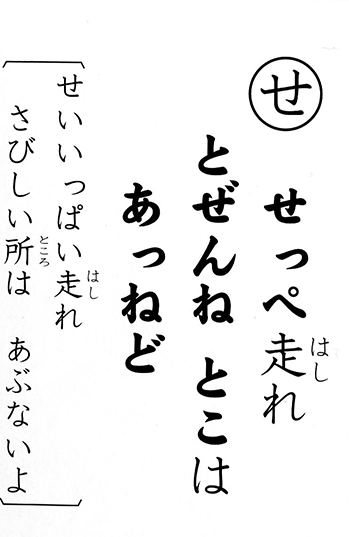 せ
せっぺ走れ
とぜんね とこは
あっねど
せいいっぱい走れ
さびしい所は あぶないよ